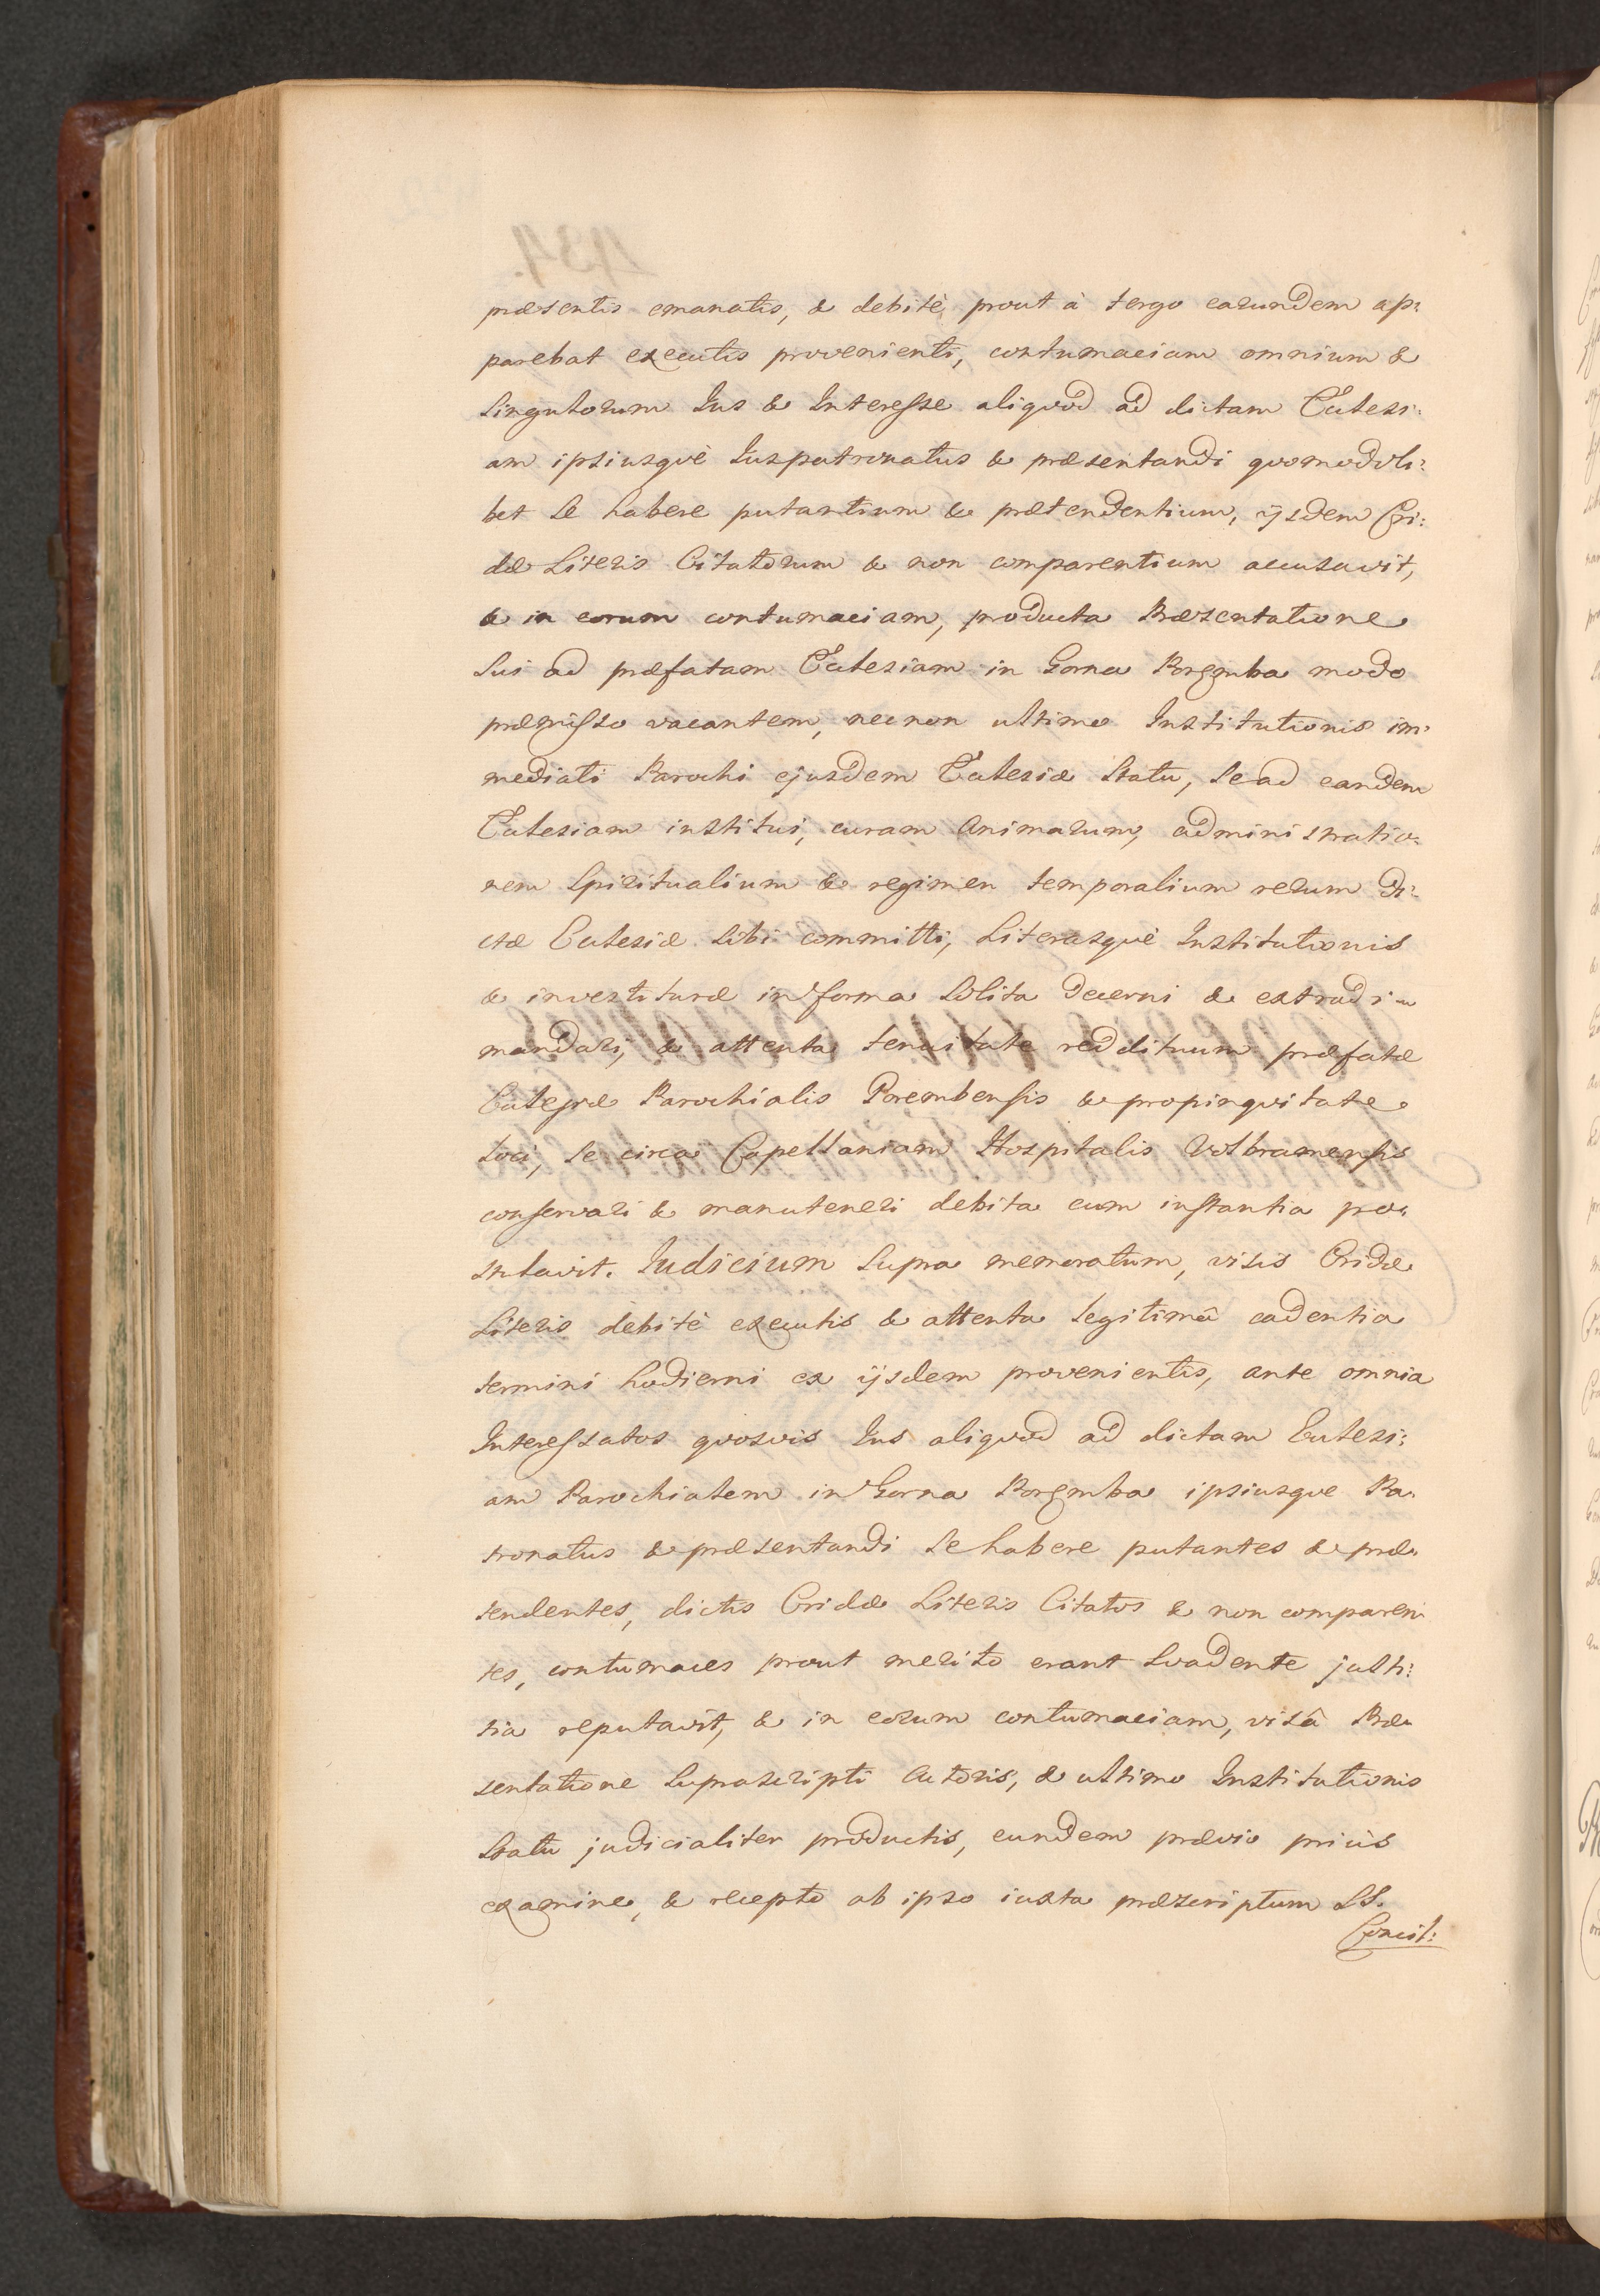 præsentis emanatis, & debitè prout à tergo earundem ap:
parebat executis provenienti, contumaciam omnium &
singulorum Ius & Interesse aliqvod ad dictam Eclesi:
am ipsiusqvè Iuspatronatus & præsentandi qvomodoli:
bet se habere putantium & prætendentium, ijsdem Cri:
dæ Literis Citatorum & non comparentium accusavit,
& in eorum contumaciam, producta Præsentatione
sui ad præfatam Eclesiam in Gorna Poręmba modo
præmisso vacantem, necnon ultimo Institutionis im:
mediati Parochi ejusdem Eclesiæ Statu, se ad eandem
Eclesiam institui, curam Animarum, administratio:
nem Spiritualium & regimen temporalium rerum di:
ctæ Eclesiæ sibi committi, Literasqvè Institutionis
& investituræ in forma Solita decerni & extradi
mandari, & attenta tenuitate reddituum præfatæ
Eclesiæ Parochialis Porembensis & propinqvitate
loci, se circa Capellaniam Hospitalis Volbramensis
conservari & manuteneri debita cum instantia po:
stulavit. Iudicium supra memoratum, visis Cridæ
Literis debitè executis & attenta legitimâ cadentia
termini hodierni ex ijsdem provenientis, ante omnia
Interessatos qvosvis Ius aliqvod ad dictam Eclesi:
am Parochialem in Gorna Poręmba ipsiusqve Pa:
tronatus & præsentandi se habere putantes & præ:
tendentes, dictis Cridæ Literis Citatos & non comparen:
tes, contumaces prout merito erant svadente justi:
tia reputavit, & in eorum contumaciam, visâ Præ:
sentatione suprascripti Actoris, & ultimo Institutionis
Statu judicialiter productis, eundem prævio priùs
examine, & recepto ab ipso iuxta præscriptum SS.
Concil: